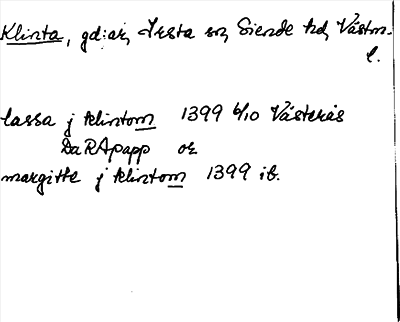 Klinta, gd:ar, Irsta sn, Siende hd, Västm.
l.
lassa j klintom 1399 6/10 Västerås
DaRApapp or
margitte j klintom 1399 ib.